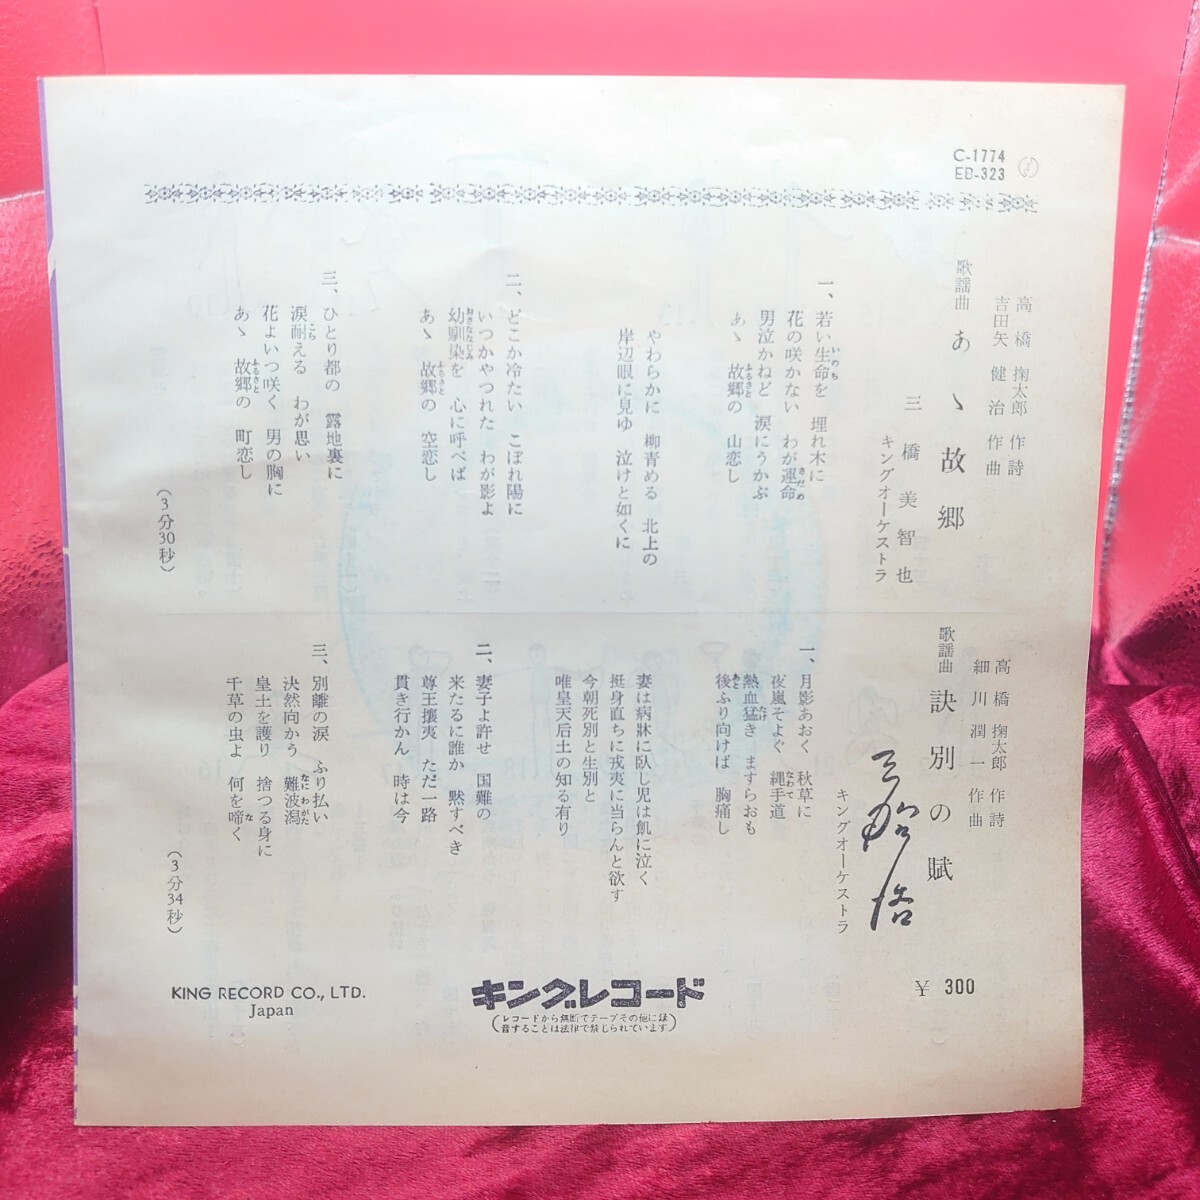 C-1774
EB-323
高橋 掬太郎 作詩
吉田矢 健治 作曲
歌謡曲 あゝ故郷
三橋美智也
キングオーケストラ
一、若い生命を 埋れ木に
花の咲かない わが運命
男泣かねど 涙にうかぶ
あゝ 故郷の 山恋し
やわらかに 柳青める 北上の
岸辺眼に見ゆ 泣けと如くに
二、どこか冷たい こぼれ陽に
いつかやつれた わが影よ
幼馴染を 心に呼べば
あゝ 故郷の 空恋し
三、ひとり都の 露地裏に
涙耐える わが思い
花よいつ咲く 男の胸に
あゝ 故郷の 町恋し
(3分30秒)
高橋 掬太郎 作詩
細川 潤一 作曲
歌謡曲 訣別の賦
キングオーケストラ
一、月影あおく 秋草に
夜嵐そよぐ 縄手道
熱血猛き ますらおも
後ふり向けば 胸痛し
妻は病牀に臥し児は飢に泣く
挺身直ちに戎夷に当らんと欲す
今朝死別と生別と
唯皇天后土の知る有り
二、妻子よ許せ 国難の
来たるに誰か 黙すべき
尊王攘夷 ただ一路
貫き行かん 時は今
三、別離の涙 ふり払い
決然向かう 難波潟
皇土を護り 捨つる身に
千草の虫よ 何を啼く
(3分34秒)
KING RECORD CO., LTD.
Japan
キングレコード
(レコードから無断でテープその他に録
音することは法律で禁じられています)
¥ 300